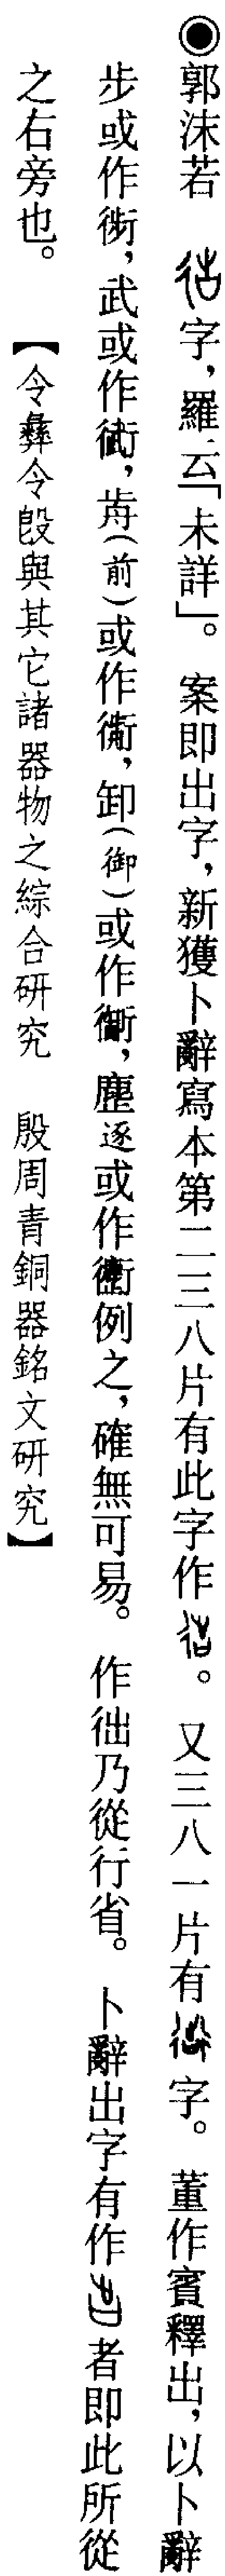 ◉郭沫若　字，羅云「未詳」。　案即出字，新獲卜辭寫本第二三八片有此字作。　又三八一片有字。　董作賓釋出，以卜辭
步或作䢜，武或作，歬（前）或作，卸（御）或作，逐或作例之，確無可易。　作䢺乃從行省。　卜辭出字有作者即此所從
之右旁也。　【令彝令𣪘與其它諸器物之綜合研究　殷周青銅器銘文研究】